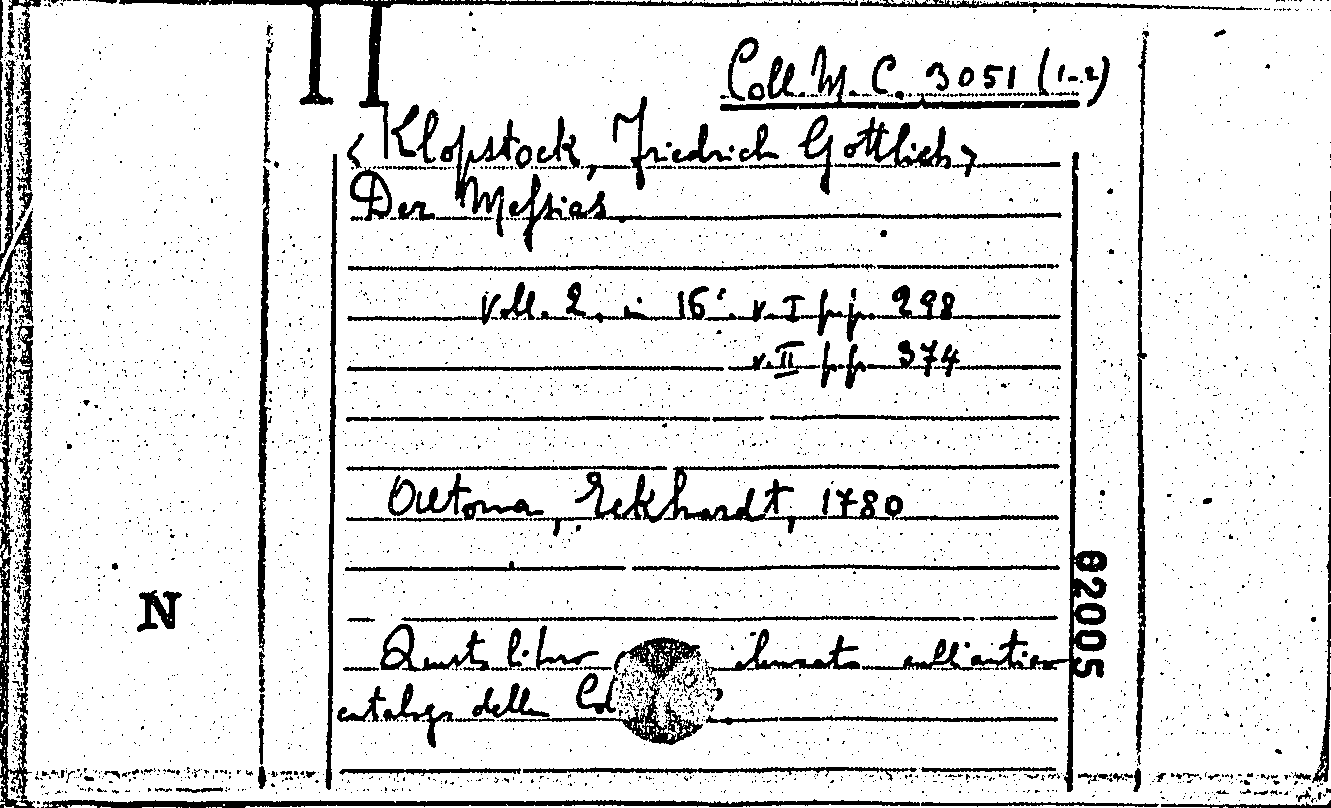 Coll. M. C. 3051 (1-2)
< Klopstock, Friedrich Gottlieb >
Der Messias.
Voll. 2. in 16° v. I pp. 298
v. II pp. 374
Altona, Eckhardt, 1780
N
62005
Questo libro sull'antico
catalogo della